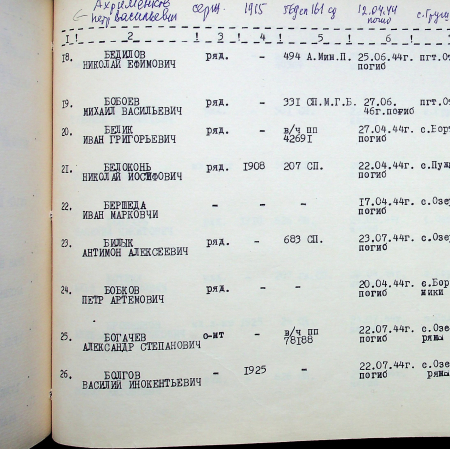 Ахременков серж. 1915 12.04.44 с.Груш
Петр Васильевич погиб
1 ! 2 ! 3 ! 4 ! 5 ! 6 ! 7
18. БЕДИЛОВ ряд. - 494 А.Мин.П. 25.06.44г. пгт.О
НИКОЛАЙ ЕФИМОВИЧ погиб
19. БОБОЕВ ряд. - 331 СП.М.Г.Б. 27.06. пгт.О
МИХАИЛ ВАСИЛЬЕВИЧ 46г.погиб
20. БЕЛИК ряд. - в/ч пп 27.04.44г. с.Борт
ИВАН ГРИГОРЬЕВИЧ 42691 погиб
21. БЕЛОКОНЬ ряд. 1908 207 СП. 22.04.44г. с.Пуж
НИКОЛАЙ ИОСИФОВИЧ погиб
22. БЕРШЕДА - - - 17.04.44г. с.Озе
ИВАН МАРКОВЧИ погиб
23. БИЛЫК ряд. - 683 СП. 23.07.44г. с.Озе
АНТИМОН АЛЕКСЕЕВИЧ погиб
24. БОБКОВ ряд. - - 20.04.44г. с.Бор
ПЕТР АРТЕМОВИЧ погиб ники
25. БОГАЧЕВ с-нт - в/ч пп 22.07.44г. с.Озе
АЛЕКСАНДР СТЕПАНОВИЧ 78188 погиб ряны
26. БОЛГОВ - 1925 - 22.07.44г. с.Озе
ВАСИЛИЙ ИНОКЕНТЬЕВИЧ погиб ряны